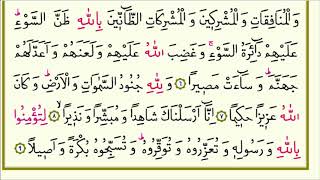 وَالْمُنَافِقَاتِ وَالْمُشْرِكِينَ وَالْمُشْرِكَاتِ الظَّانِّينَ بِاللهِ ظَنَّ السَّوْءِ
عَلَيْهِمْ دَائِرَةُ السَّوْءِ وَغَضِبَ اللهُ عَلَيْهِمْ وَلَعَنَهُمْ وَاَعَدَّلَهُمْ
جَهَنَّمَ وَسَاءَتْ مَصِيرًا ﴿٦﴾ وَلِلهِ جُنُودُ السَّمٰوَاتِ وَالْاَرْضِ وَكَانَ
اللهُ عَزِيزًا حَكِيمًا ﴿٧﴾ اِنَّا اَرْسَلْنَاكَ شَاهِدًا وَمُبَشِّرًا وَنَذِيرًا ﴿٨﴾ لِتُؤْمِنُوا
بِاللهِ وَرَسُولِهِ وَتُعَزِّرُوهُ وَتُوَقِّرُوهُ وَتُسَبِّحُوهُ بُكْرَةً وَاَصِيلًا ﴿٩﴾